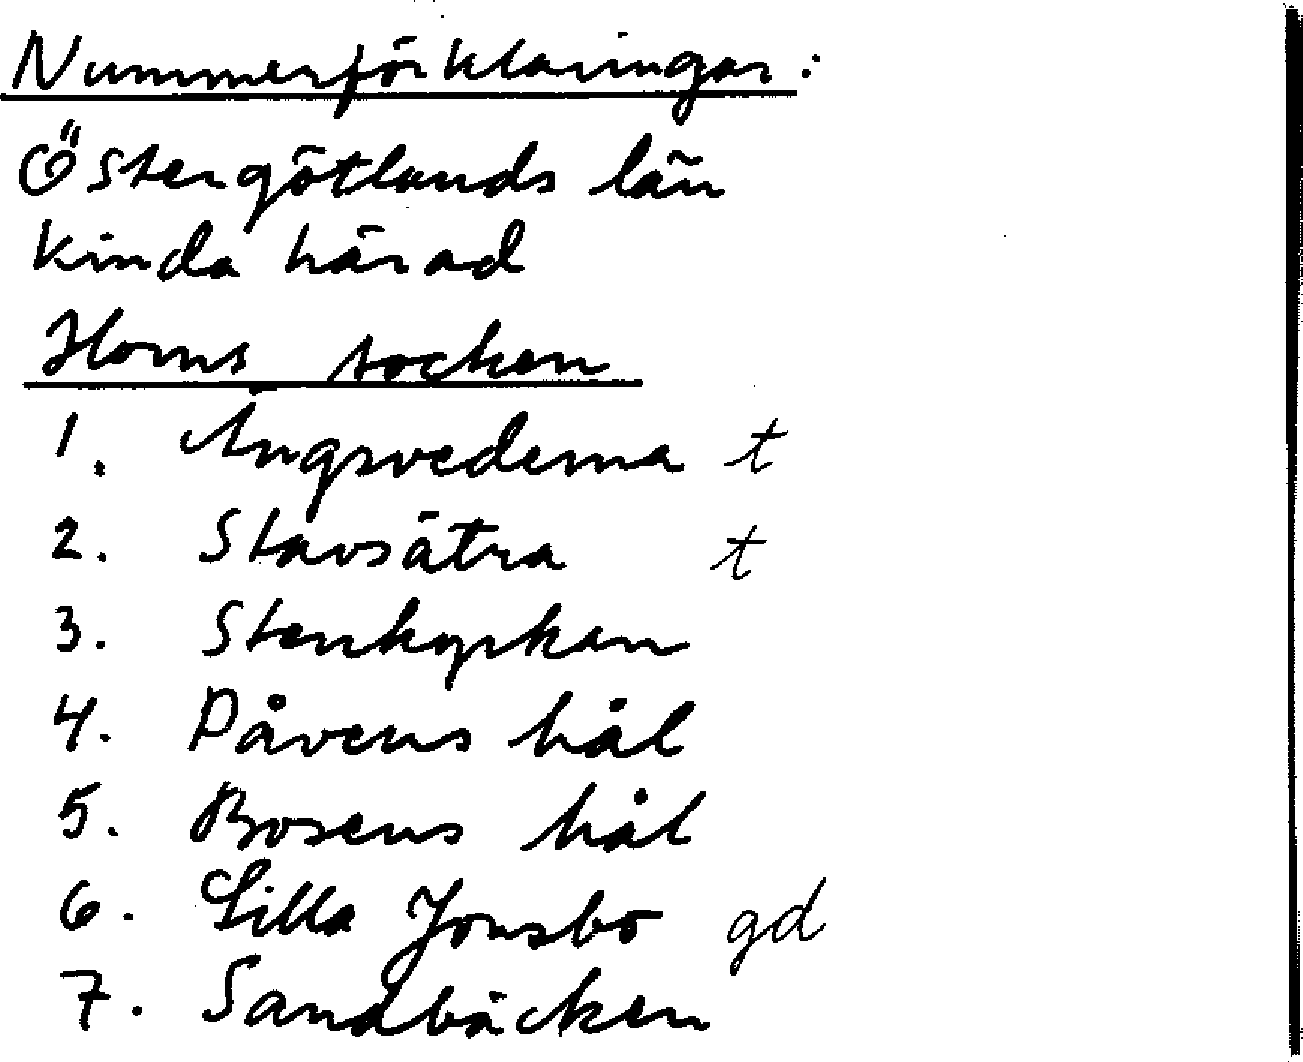 Nummerförklaringar:
Östergötlands län
Kinda härad
Horns socken
1. Ängsvederna t
2. Stavsätra t
3. Stenkyrkan
4. Påvens hål
5. Bosens hål
6. Lilla Jonsbo gd
7. Sandbäcken